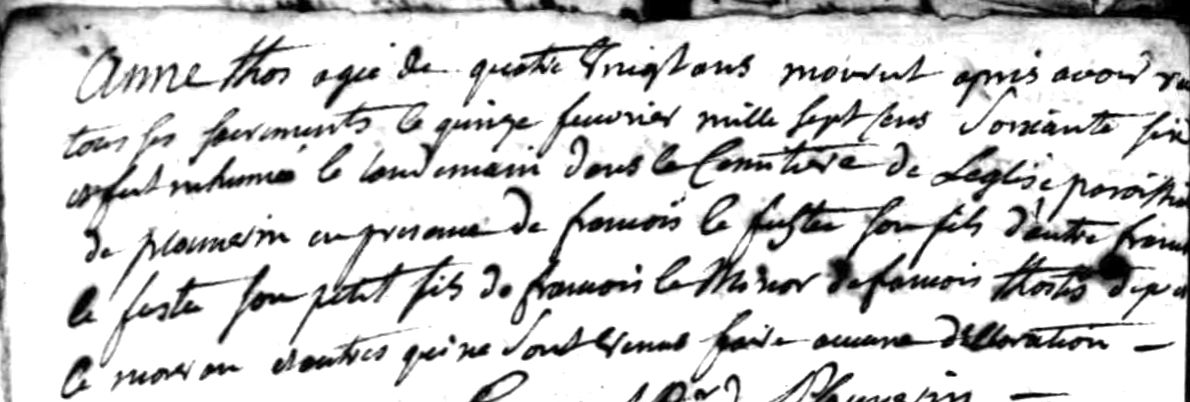 Anne thos agée de quatre vingt ans mourut apres avoir
tous ses sacrements le quinze feuvrier mille sept cens soixante six
et fut inhumé le landemain dans le Cemitiere de Leglise paroissi
de ploumerin en presence de francois le fustec son fils d'autre francois
le fustec son petit fils de francois le Minor de francois thos
Le morvan et autres qui ne sont venus faire aucune declaration —